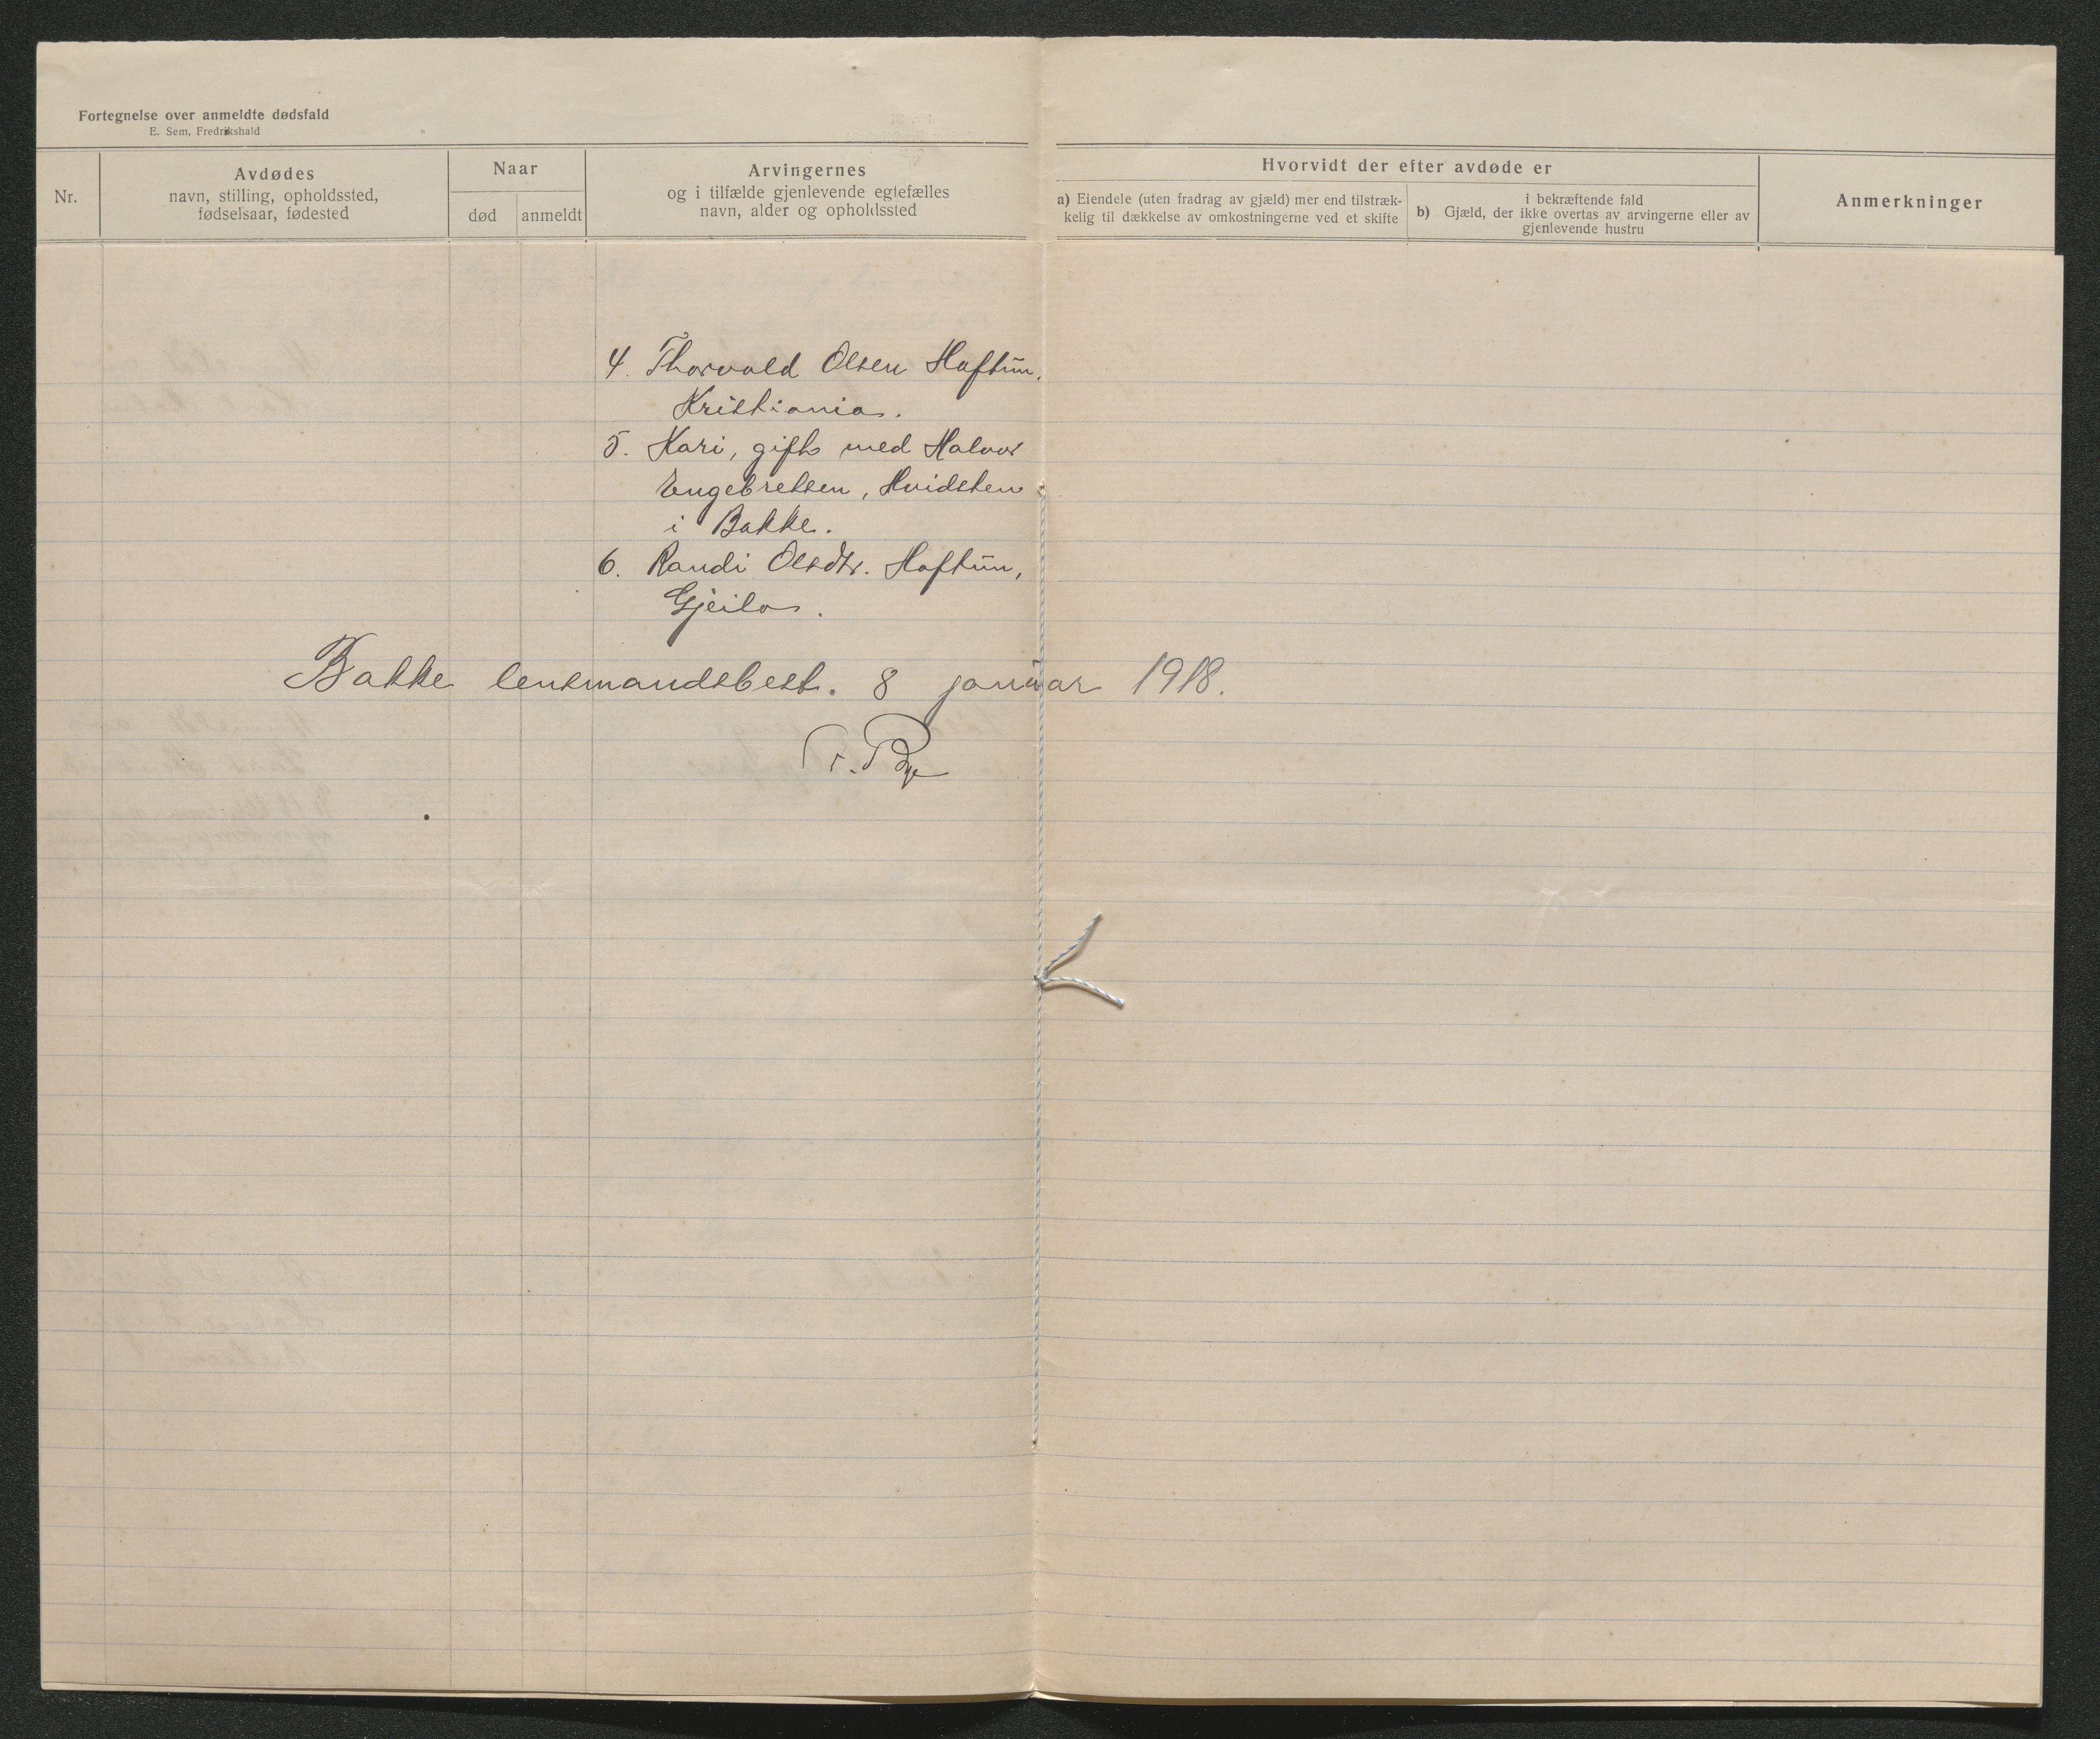 Fortegnelse over anmeldte dødsfald
E. Sem, Fredrikshald
Nr.
Avdødes
navn, stilling, opholdssted,
fødselsaar, fødested
Naar
død
anmeldt
Arvingernes
og i tilfælde gjenlevende egtefælles
navn, alder og opholdssted
Hvorvidt der efter avdøde er
a) Eiendele (uten fradrag av gjæld) mer end tilstræk-
kelig til dækkelse av omkostningerne ved et skifte
i bekræftende fald
b) Gjæld, der ikke overtas av arvingerne eller av
gjenlevende hustru
Anmerkninger
4. Thorvald Olsen Haftun,
Kristiania.
5. Kari, gift med Halvor
Engebretsen, Hvidsten
i Bakke.
6. Randi Olsdtr. Haftun,
Gjeilo.
Bakke lensmandsbest. 8 januar 1918.
Bye